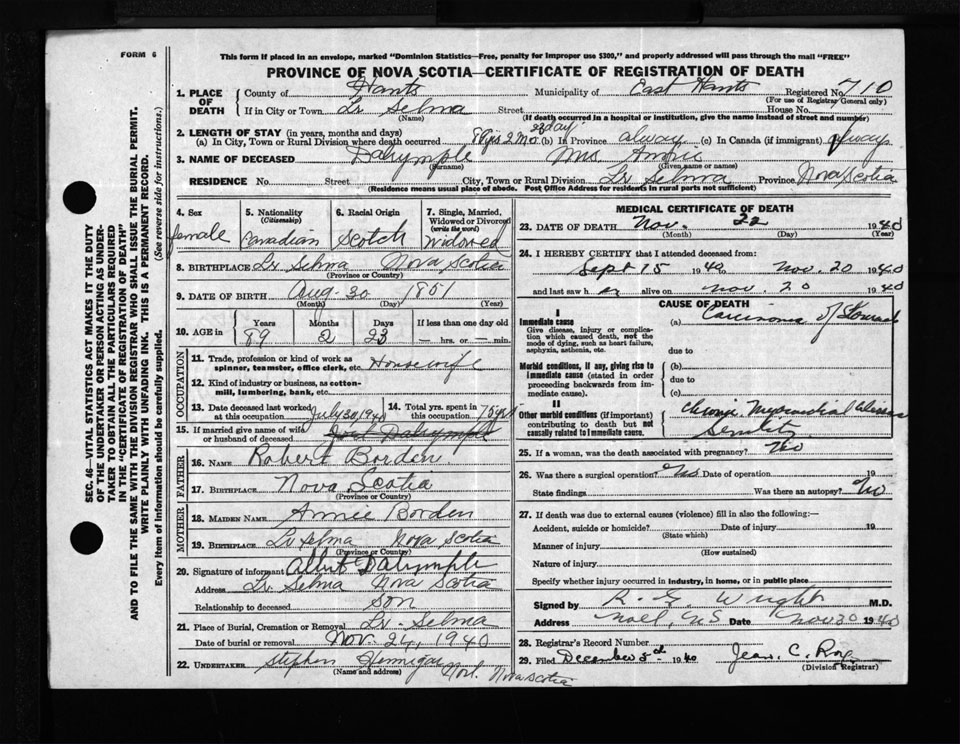 FORM 6
This form if placed in an envelope, marked "Dominion Statistics—Free, penalty for improper use $300," and properly addressed will pass through the mail "FREE"
PROVINCE OF NOVA SCOTIA—CERTIFICATE OF REGISTRATION OF DEATH
1. PLACE OF DEATH
County of Hants Municipality of East Hants Registered No. 710
(For use of Registrar General only)
If in City or Town Lr Selma Street House No.
(Name) (If death occurred in a hospital or institution, give the name instead of street and number)
2. LENGTH OF STAY (in years, months and days)
(a) In City, Town or Rural Division where death occurred 89 yrs 2 mo 23 day (b) In Province always (c) In Canada (if immigrant) always
3. NAME OF DECEASED Dalrymple Mrs. Annie
(Surname) (Given name or names)
RESIDENCE No. Street City, Town or Rural Division Lr Selma Province Nova Scotia
(Residence means usual place of abode. Post Office Address for residents in rural parts not sufficient)
4. Sex female
5. Nationality (Citizenship) Canadian
6. Racial Origin Scotch
7. Single, Married, Widowed or Divorced (write the word) Widowed
8. BIRTHPLACE Lr Selma Nova Scotia
(Province or Country)
9. DATE OF BIRTH Aug 30 1851
(Month) (Day) (Year)
10. AGE in Years Months Days If less than one day old
89 2 23 hrs. or min.
OCCUPATION
11. Trade, profession or kind of work as spinner, teamster, office clerk, etc. Housewife
12. Kind of industry or business, as cotton-mill, lumbering, bank, etc.
13. Date deceased last worked at this occupation July 30 1940
14. Total yrs. spent in this occupation 70 yrs
15. If married give name of wife or husband of deceased Dalrymple
FATHER
16. NAME Robert Borden
17. BIRTHPLACE Nova Scotia
(Province or Country)
MOTHER
18. MAIDEN NAME Annie Borden
19. BIRTHPLACE Lr Selma Nova Scotia
(Province or Country)
20. Signature of informant Albert Dalrymple
Address Lr Selma Nova Scotia
Relationship to deceased son
21. Place of Burial, Cremation or Removal Lr. Selma
Date of burial or removal Nov. 24, 1940
22. UNDERTAKER Stephen Noel. Nova Scotia
(Name and address)
MEDICAL CERTIFICATE OF DEATH
23. DATE OF DEATH Nov. 22 1940
(Month) (Day) (Year)
24. I HEREBY CERTIFY that I attended deceased from:
Sept 15 1940 to Nov. 20 1940
and last saw h er alive on Nov. 20 1940
CAUSE OF DEATH
I
Immediate cause
Give disease, injury or complication which caused death, not the mode of dying, such as heart failure, asphyxia, asthenia, etc.
(a) Carcinoma of Stomach
due to
Morbid conditions, if any, giving rise to immediate cause (stated in order proceeding backwards from immediate cause).
(b)
due to
(c)
II
Other morbid conditions (if important) contributing to death but not causally related to immediate cause.
Chronic Myocardial
Senility
25. If a woman, was the death associated with pregnancy? No
26. Was there a surgical operation? No Date of operation 19
State findings Was there an autopsy? No
27. If death was due to external causes (violence) fill in also the following:—
Accident, suicide or homicide? Date of injury 19
(State which)
Manner of injury
(How sustained)
Nature of injury
Specify whether injury occurred in industry, in home, or in public place
Signed by R. G. Wright M.D.
Address Noel, NS Date Nov 30 1940
28. Registrar's Record Number
29. Filed December 3rd 1940 Jean C. Roy
(Division Registrar)
SEC. 46—VITAL STATISTICS ACT MAKES IT THE DUTY
OF THE UNDERTAKER OR PERSON ACTING AS UNDER-
TAKER TO OBTAIN ALL THE PARTICULARS REQUIRED
IN THE "CERTIFICATE OF REGISTRATION OF DEATH"
AND TO FILE THE SAME WITH THE DIVISION REGISTRAR WHO SHALL ISSUE THE BURIAL PERMIT.
WRITE PLAINLY WITH UNFADING INK. THIS IS A PERMANENT RECORD.
Every item of information should be carefully supplied. (See reverse side for instructions.)